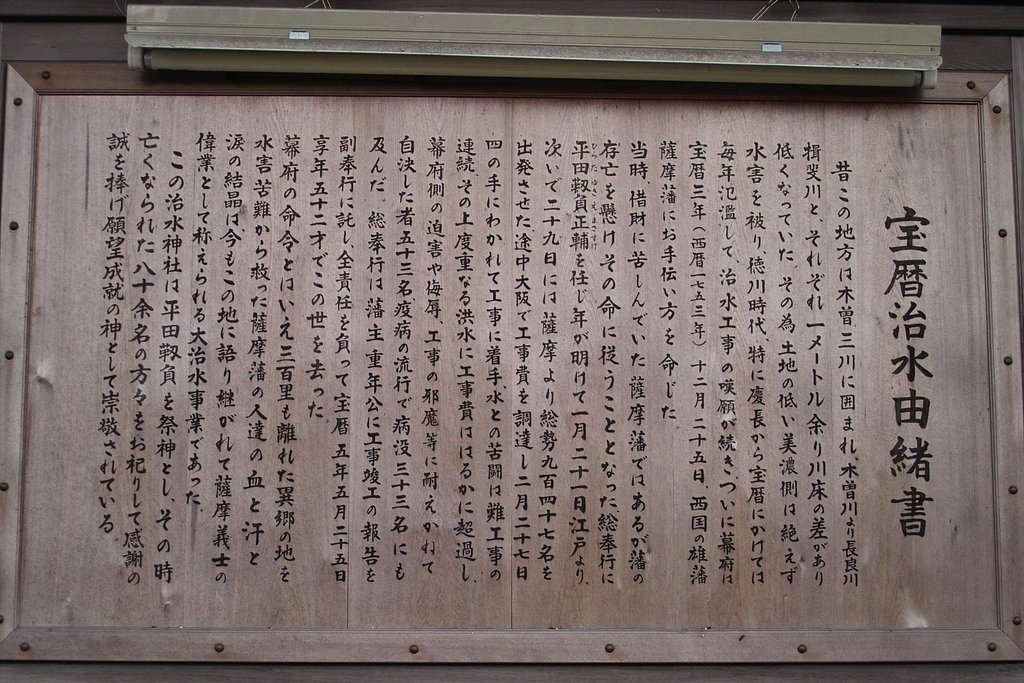 宝暦治水由緒書
昔この地方は木曽三川に囲まれ、木曽川より長良川
揖斐川と、それぞれ一メートル余り川床の差があり
低くなっていた。その為土地の低い美濃側は絶えず
水害を被り徳川時代、特に慶長から宝暦にかけては
毎年氾濫して、治水工事の嘆願が続き、ついに幕府は
宝暦三年（西暦一七五三年）十二月二十五日、西国の雄藩
薩摩藩にお手伝い方を命じた
当時、借財に苦しんでいた薩摩藩ではあるが藩の
存亡を懸けその命に従うこととなった、総奉行に
平田靱負正輔を任じ年が明けて一月二十一日江戸より、
ひらたゆきえまさすけ
次いで二十九日には薩摩より総勢九百四十七名を
出発させた、途中大阪で工事費を調達し二月二十七日
四の手にわかれて工事に着手、水との苦闘は難工事の
連続、その上度重なる洪水に工事費ははるかに超過し、
幕府側の迫害や侮辱、工事の邪魔等に耐えかねて
自決した者五十三名疫病の流行で病没三十三名にも
及んだ。総奉行は藩主重年公に工事竣工の報告を
副奉行に託し全責任を負って宝暦五年五月二十五日
享年五十二才でこの世を去った
幕府の命令とはいえ三百里も離れた異郷の地を
水害苦難から救った薩摩藩の人達の血と汗と
涙の結晶は、今もこの地に語り継がれて薩摩義士の
偉業として称えられる大治水事業であった
この治水神社は平田靱負を祭神とし、その時
亡くなられた八十余名の方々をお祀りして感謝の
誠を捧げ願望成就の神として崇敬されている。